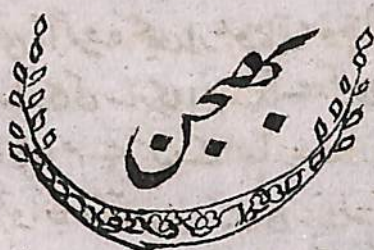 بھجن